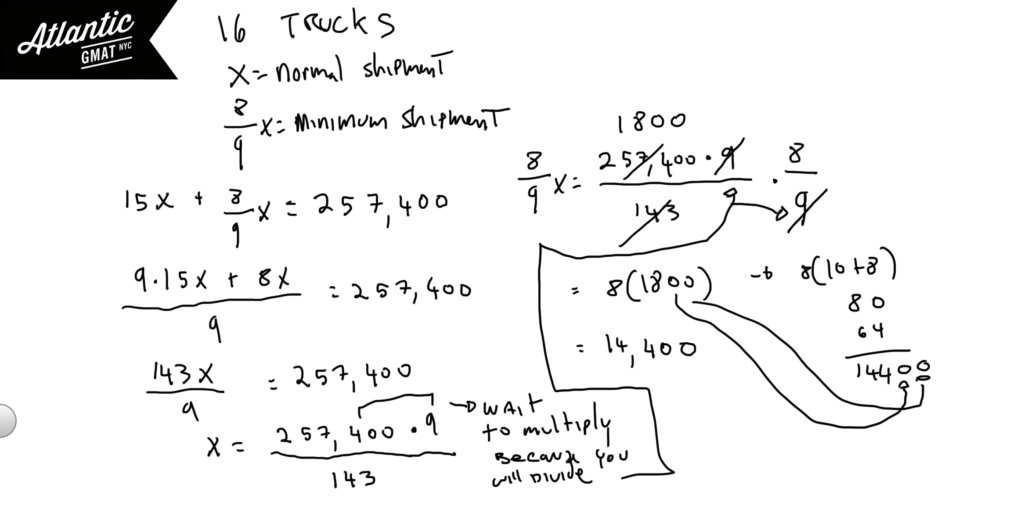 Atlantic
GMAT NYC
16 TRUCKS
x = normal shipment
8/9 x = Minimum Shipment
15x + 8/9 x = 257,400
9·15x + 8x / 9 = 257,400
143x / 9 = 257,400
x = 257,400 · 9 / 143
→ WAIT
to multiply
Because you
will Divide
1800
8/9 x = 257,400 · 9 / 143 · 8/9
9
= 8(1800) → 8(10+8)
80
64
14400
= 14,400